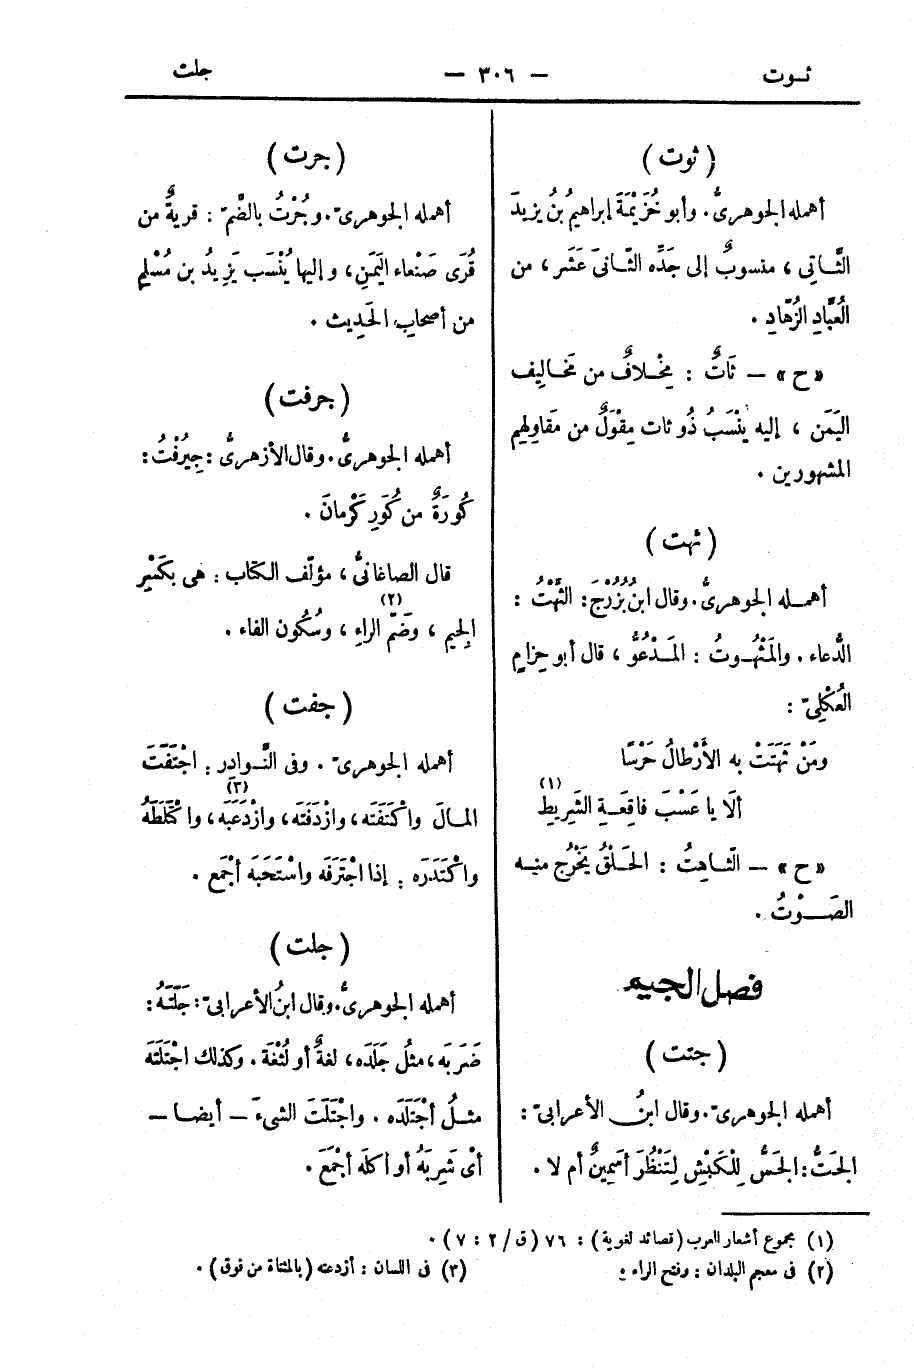 ثـوت — ٣٠٦ — جلت
( ثوت )
أهمله الجوهرىُّ. وأبو خُزَيْمَةَ إبراهيمُ بنُ يزيدَ
الثَّـاتِى ، منسوبٌ إلى جَدِّه الثّانىَ عَشَر ، من
العُبَّادِ الزُهّادِ .
« ح » — ثَاتٌ : مِخْـلافٌ من مَخَـالِيف
اليَمَن ، إليه يُنْسَبُ ذُو ثات مِقْوَلٌ من مَقَاوِلِهِم
المشهورين .
( ثهت )
أهمـله الجوهرىُّ. وقال ابنُ بُزُرْجَ : الثَّهْتُ :
الدُّعاء . والمَثْهُـوتُ : المَـدْعُوُّ ، قال أبو حِزامٍ
العُكْلِىّ :
ومَنْ ثَهَتَتْ به الأَرْطالُ حَرْسًا
أَلَا يا عَسْبَ فاقِعَـةِ الشَّرِيطِ (١)
« ح » — الثّـاهِتُ : الحَـلْقُ يَخْرُج منـه
الصَـــوْتُ .
فصل الجيم
( جتت )
أهمله الجوهرىّ. وقال ابنُ الأعرابىّ :
الجَتُّ : الجَسُّ لِلْكَبْشِ لِتَنْظُرَ أَسَمِينٌ أم لا .
( جرت )
أهمله الجوهرىّ. وجُرْتُ بالضَّم : قريةٌ من
قُرَى صَنْعاء اليَمَنِ ، وإليها يُنْسَب يَزِيدُ بن مُسْلِمٍ
من أصحابِ الحَدِيث .
( جرفت )
أهمله الجوهرىُّ. وقال الأزهرىُّ : جِيرُفْتُ :
كُورَةٌ من كُوَرِ كَرْمانَ .
قال الصاغانىُّ ، مؤلّف الكتاب : هى بكَسْرِ
الجيمِ ، وضَمّ (٢) الراءِ ، وسُكُون الفاء .
( جفت )
أهمله الجوهرىّ . وفى النَّـوادِرِ : اجْتَفَتَ
المـالَ واكْتَفَتَه ، وازْدَفَتَه ، وازْدَعَبَه (٣) ، واكْتَلَطَهُ
واكْتَدَرَه : إذا اجْتَرَفَه واسْتَحَبَه أجْمَع .
( جلت )
أهمله الجوهرىُّ. وقال ابنُ الأعرابىّ : جَلَتَـهُ :
ضَرَبَه ، مثلُ جَلَدَه ، لغةٌ أو لُثْغَة . وكذلك اجْتَلَتَه
مثـلُ اجْتَلَدَه . واجْتَلَتَ الشىءَ — أيضـا —
أَىْ شَرِبَهُ أو أكلَه أجْمَعَ .
(١) مجموع أشعار العرب (قصائد لغوية) : ٧٦ (ق/٢ : ٧) .
(٢) فى معجم البلدان : وفتح الراء . (٣) فى اللسان : أزدعته (بالمثناة من فوق) .